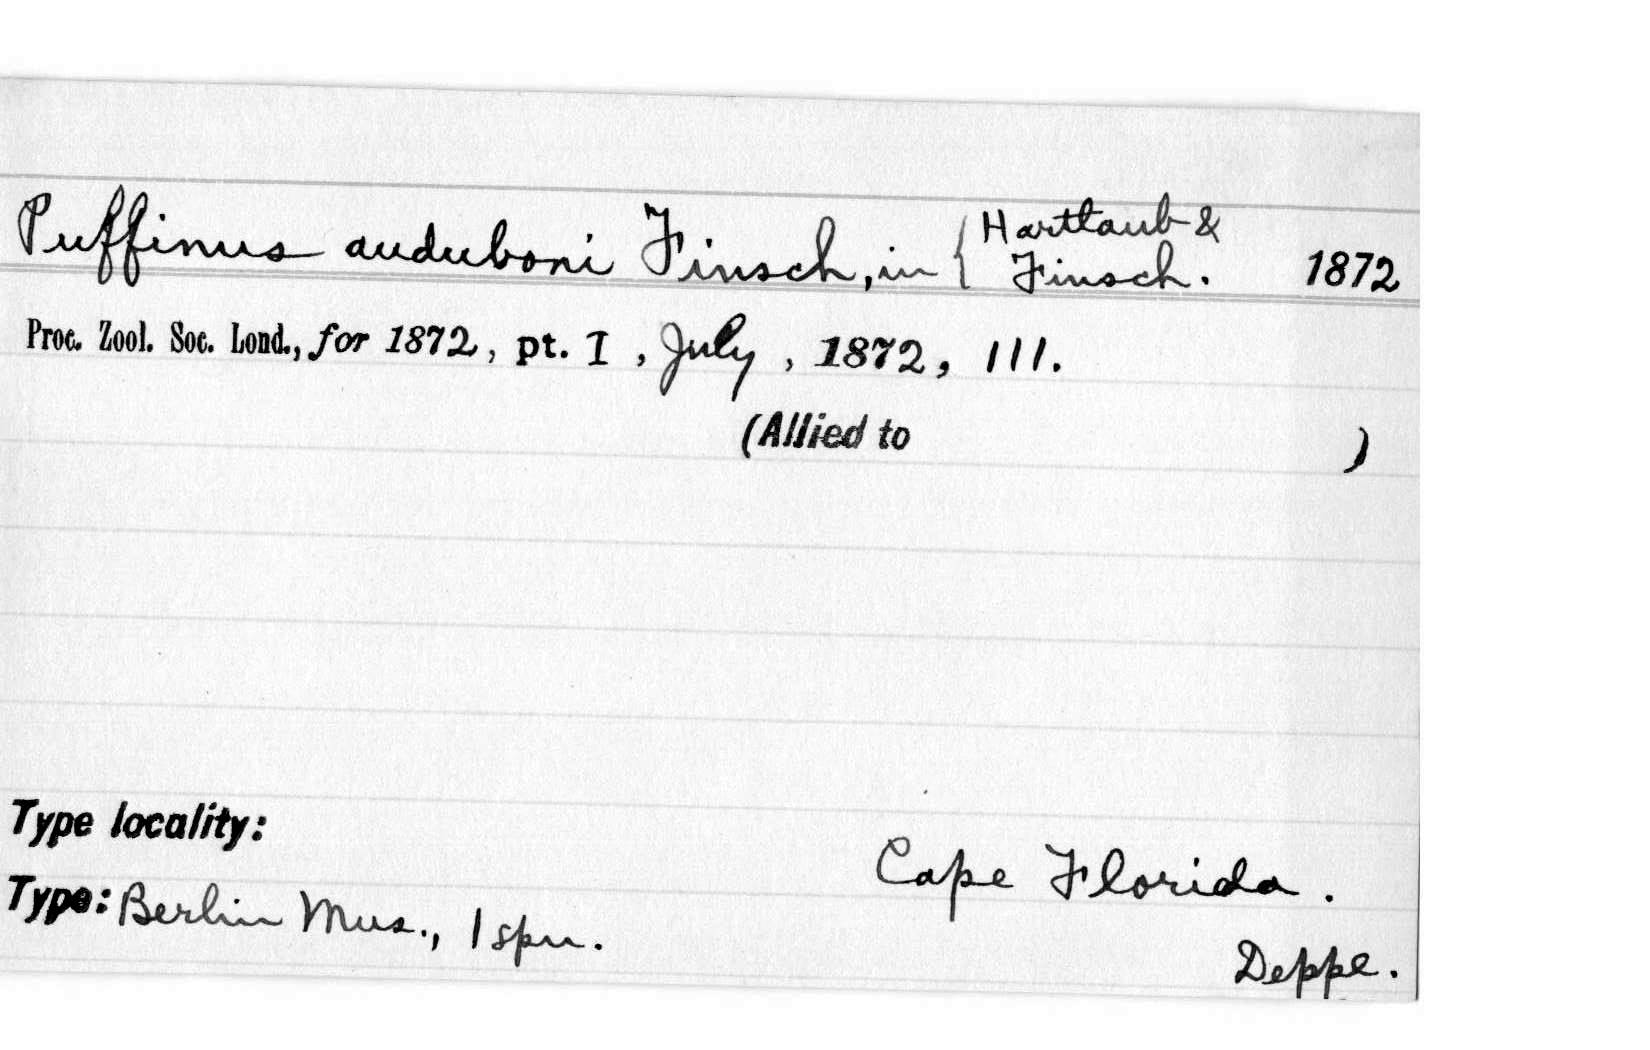 Puffinus auduboni Finsch, in { Hartlaub & Finsch. 1872
Proc. Zool. Soc. Lond., for 1872, pt. I, July, 1872, 111.
(Allied to )
Type locality:
Cape Florida.
Type: Berlin Mus., 1 spn.
Deppe.